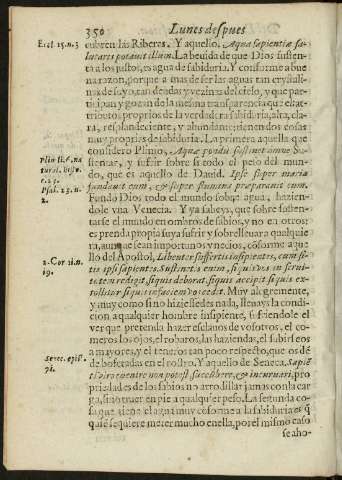 350 Lunes despues
Eccl. 15. n. 3 cubren las Riberes. Y aquello. Aqua sapientiæ sa-
lutaris potauit illum. La beuida de que Dios susten-
ta a los justos, es agua de sabiduria. Y conforme a bue
na razon, porque a mas de ser las aguas tan crystali-
nas de suyo, tan dendas y vezinas del cielo, y que par-
ticipan y gozan de la mesma transparencia que el at-
tributos proprios de la verdadera sabiduria, alta, cla-
ra, resplandeciente, y abundante: tienen dos cosas
muy proprias de sabiduria. La primera aquella que
considero Plinio, Aquæ pondus sustinet omne Su-
stentar, y sufrir sobre si todo el peso del mun-
do, que es aquello de Dauid. Ipse super maria
fundauit eum, & super flumina præparauit eum.
Fundò Dios todo el mundo sobre agua, hazien-
dole vna Venecia. Y ya sabeys, que sobre susten-
tarse el mundo en ombros de sabios, y no en otros:
es prenda propia suya sufrir y sobrelleuar a qualquie
ra, aunque sean importunos y necios, cõforme aque
llo del Apostol, Libenter suffertis insipientes, cum si-
tis ipsi sapientes. Sustinetis enim, si quis vos in serui-
tutem redigit, si quis deborat, si quis accipit si quis ex-
tollitur si quis in faciem vos cædit. Muy alegremente,
y muy como si no hiziessedes nada, lleuays la condi-
cion a qualquier hombre insipiente, sufriendole el
ver que pretenda hazer esclauos de vosotros, el co-
meros los ojos, el robaros, las haziendas, el subirseos
a mayores, y el teneros tan poco respecto, que os dé
de bofetadas en el rostro. Y aquello de Seneca. Sapiẽ
pro
priedades de los sabios no arrodillar jamas con la car
ga, sino traer en pie a qualquier peso. La segunda co
sa que tiene el agua muy cõforme a la sabiduria es q̃
quiẽ se quiere meter mucho en ella, por el mismo caso
se aho-
Plin. na
tural. histo
Psal. 23. n.
2.
2. Cor. 11. n.
19.
Senec. epist.
71.